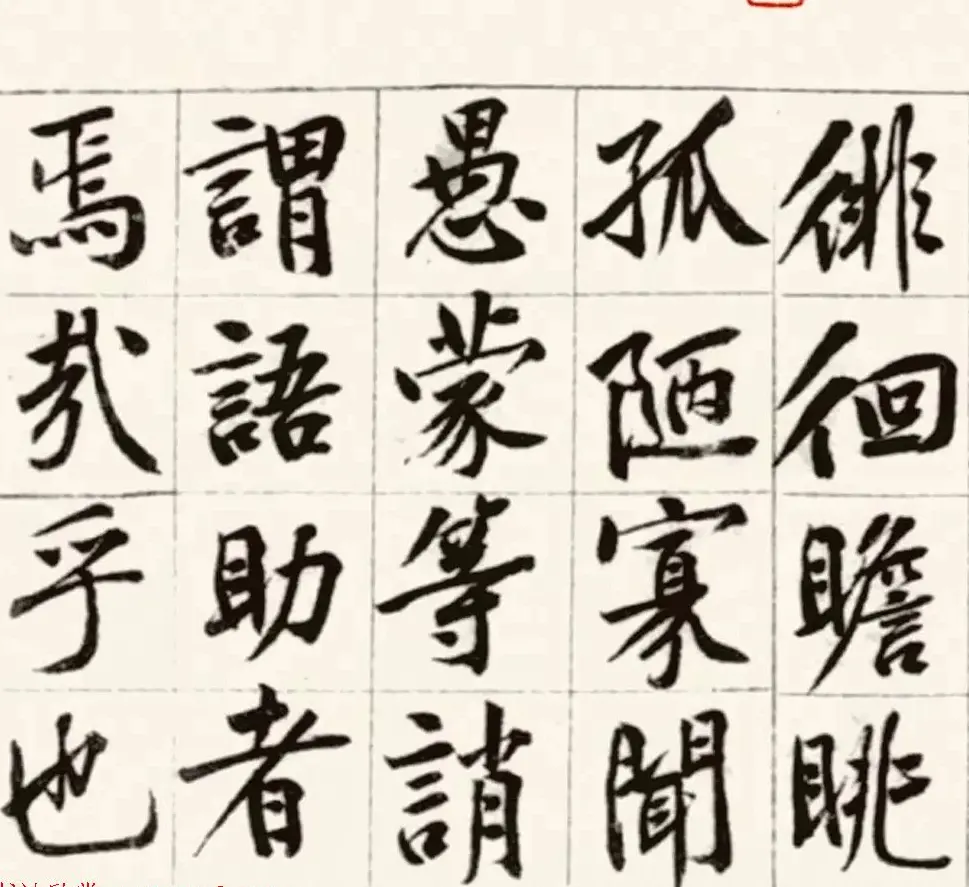 徘徊瞻眺
孤陋寡聞
愚蒙等誚
謂語助者
焉哉乎也